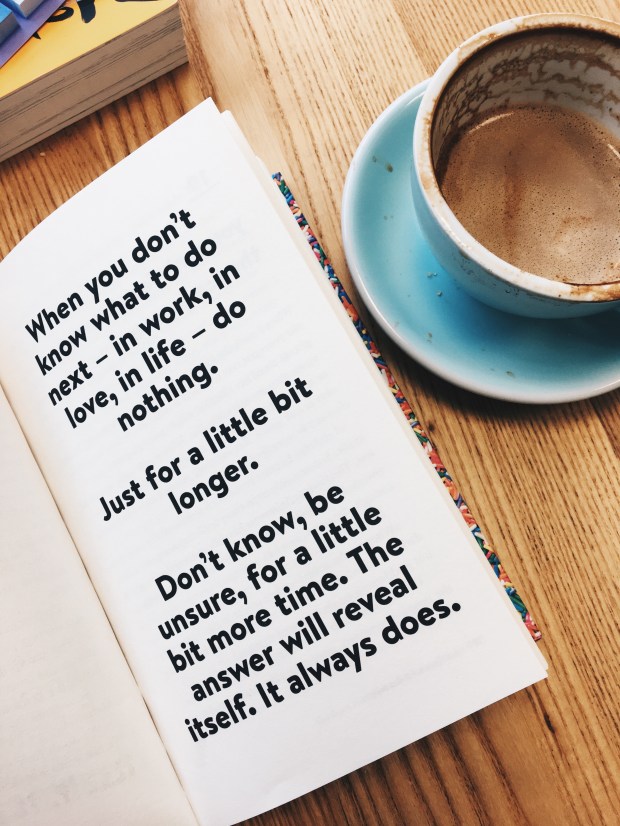 When you don’t
know what to do
next – in work, in
love, in life – do
nothing.
Just for a little bit
longer.
Don’t know, be
unsure, for a little
bit more time. The
answer will reveal
itself. It always does.